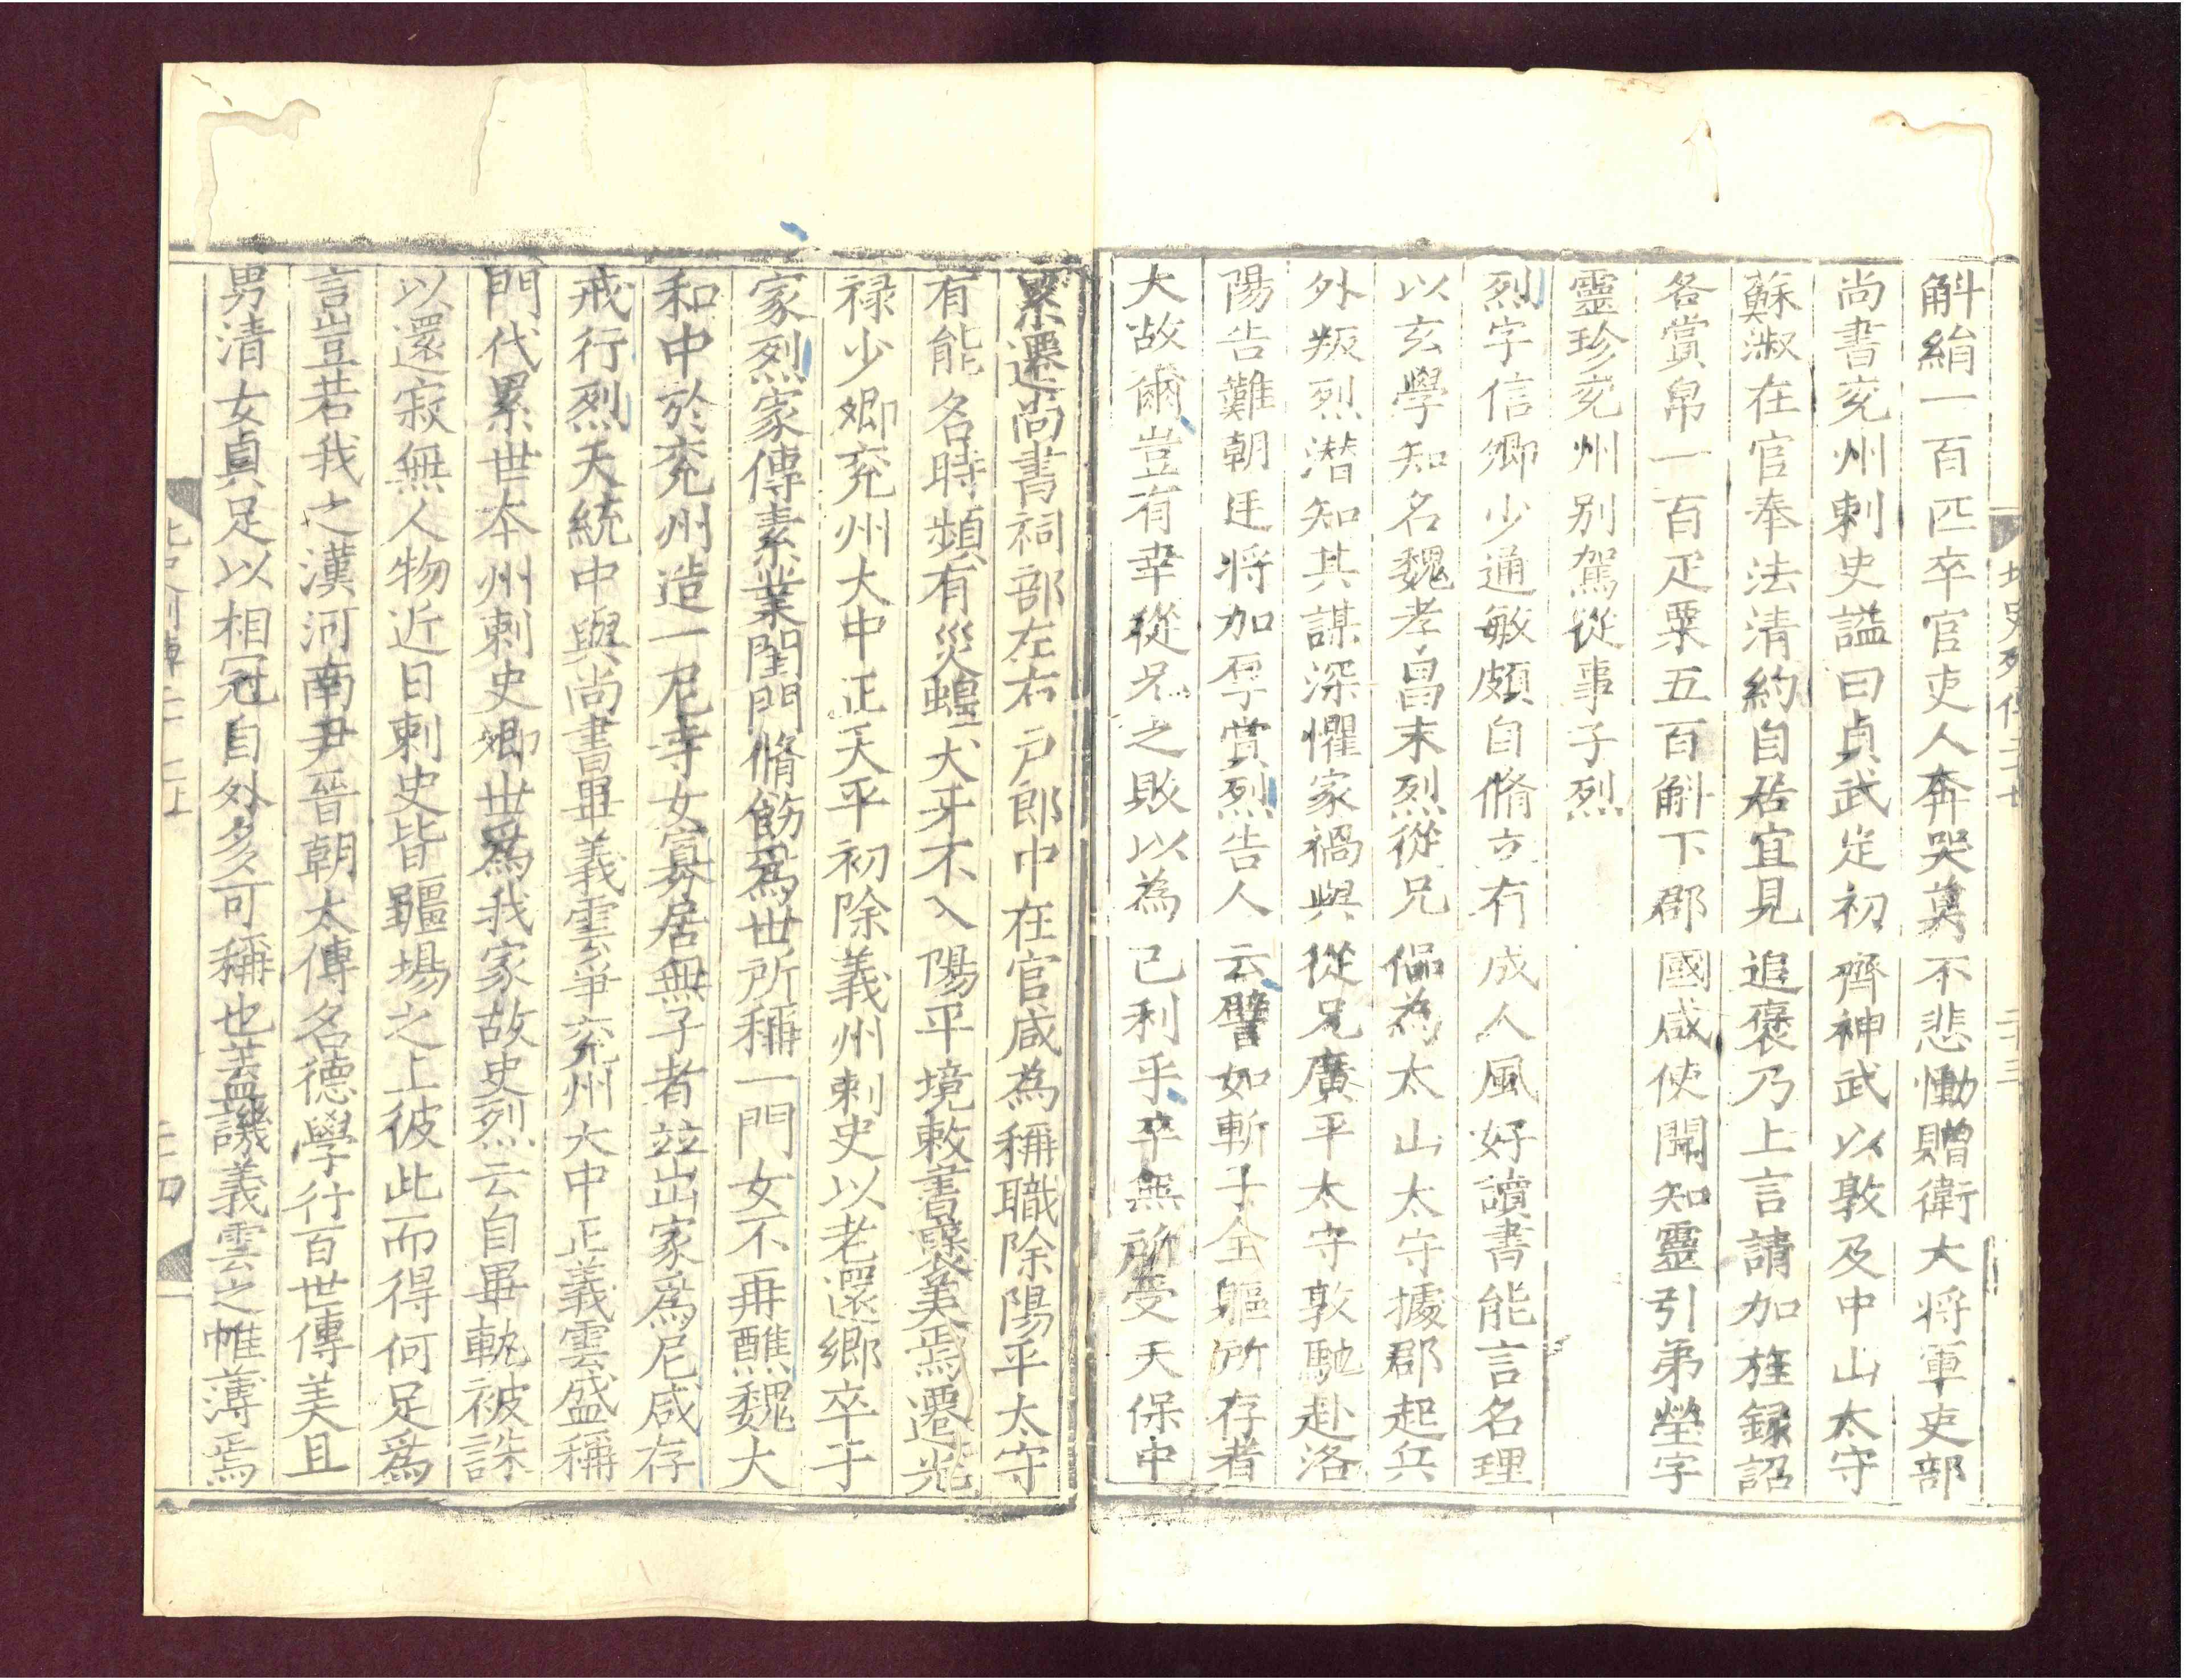 斛絹一百匹卒官吏人奔哭莫不悲慟贈衛大将軍吏部
尚書兖州刺史謚曰貞武定初齊神武以敦及中山太守
蘇淑在官奉法清約自居宜見追褒乃上言請加旌録詔
各賞帛一百疋粟五百斛下郡國咸使聞知靈引弟瑩字
靈珍兖州别駕從事子烈
烈字信卿少通敏頗自脩立有成人風好讀書能言名理
以玄學知名魏孝昌末烈從兄侃為太山太守據郡起兵
外叛烈潜知其謀深懼家禍與從兄廣平太守敦馳赴洛
陽告難朝廷将加厚賞烈告人云譬如斬手全軀所存者
大故爾豈有幸從兄之敗以為己利乎卒無所受天保中
累遷尚書祠部左右戸郎中在官咸為稱職除陽平太守
有能名時頻有災蝗犬牙不入陽平境敕書褒美焉遷光
禄少卿兖州大中正天平初除義州刺史以老還鄉卒于
家烈家傳素業閨門脩飭爲世所稱一門女不再醮魏大
和中於兖州造一尼寺女寡居無子者竝出家爲尼咸存
戒行烈天統中與尚書畢義雲爭兖州大中正義雲盛稱
門代累世本州刺史卿世爲我家故吏烈云自畢軌被誅
以還寂無人物近日刺史皆疆場之上彼此而得何足爲
言豈若我之漢河南尹晉朝太傅名德學行百世傳美且
男清女貞足以相冠自外多可稱也蓋譏義雲之帷薄焉